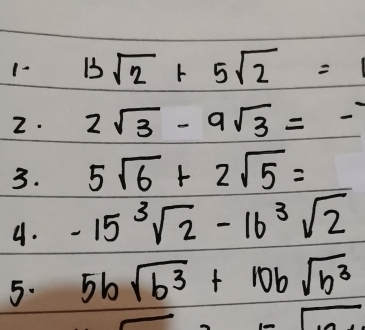 1. 13√2 + 5√2 =
2. 2√3 - 9√3 = -
3. 5√6 + 2√5 =
4. -15 ³√2 - 16 ³√2
5. 5b√b³ + 10b√b³